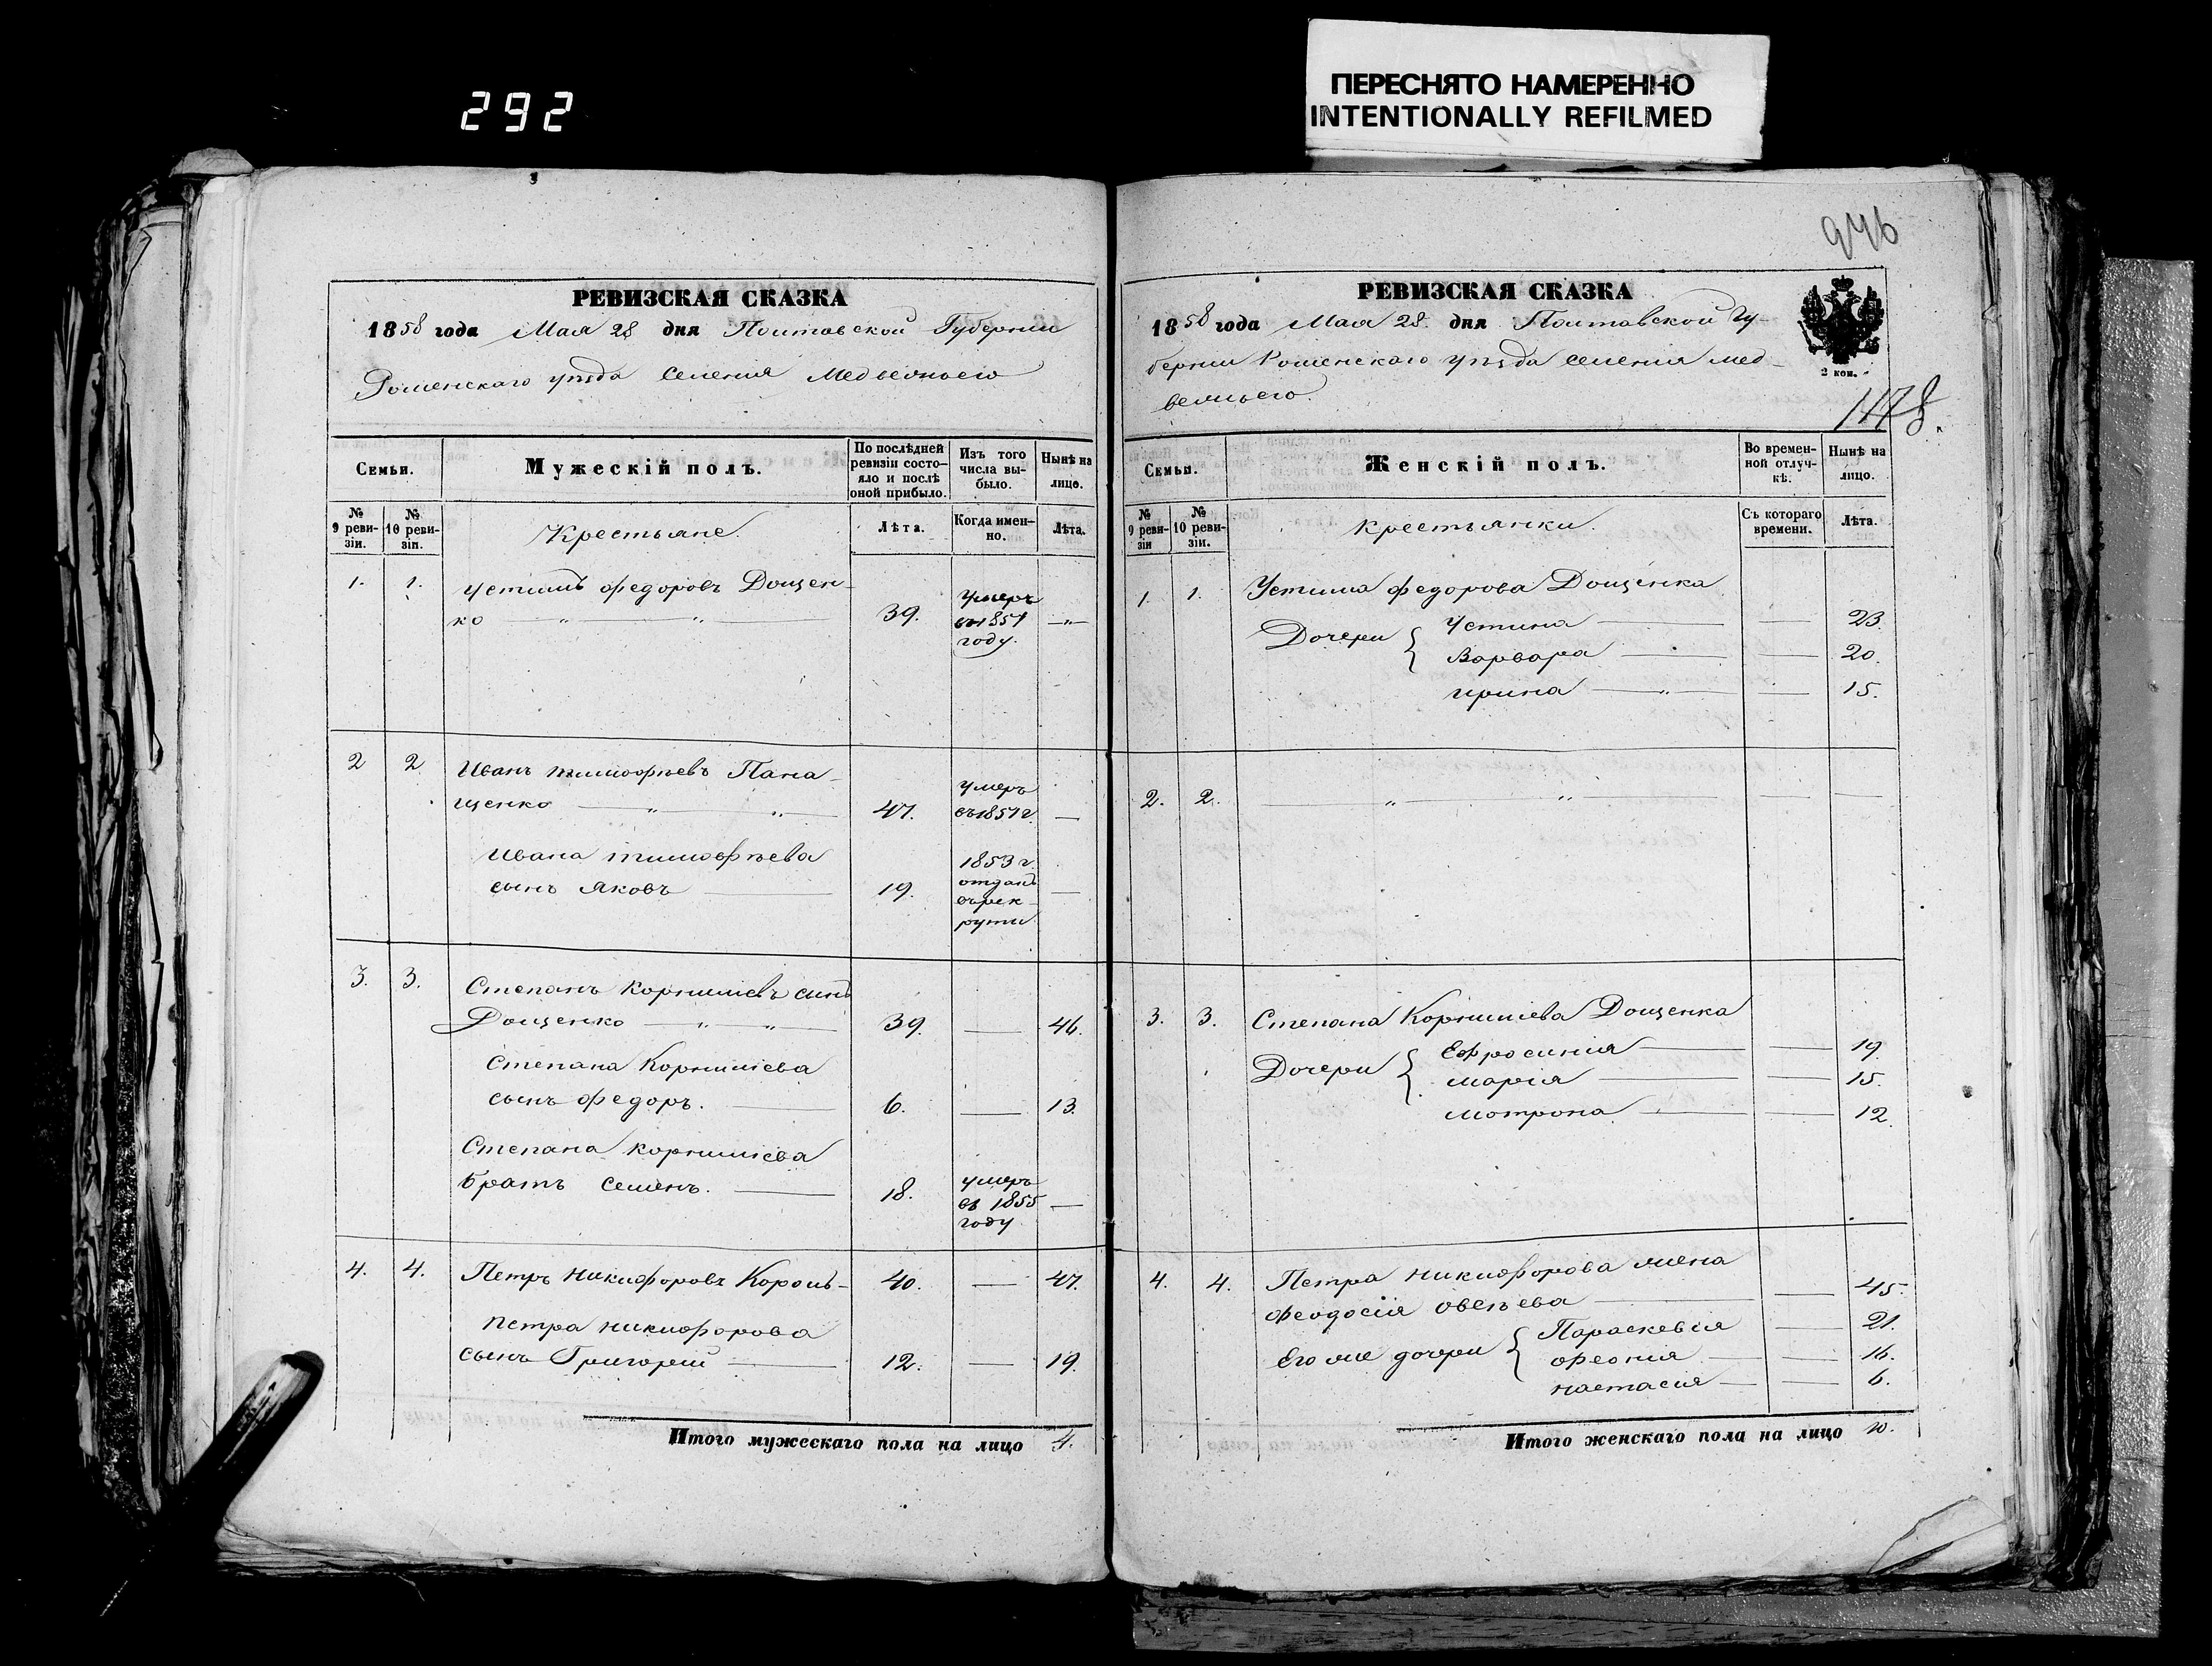 292
ПЕРЕСНЯТО НАМЕРЕННО
INTENTIONALLY REFILMED
РЕВИЗСКАЯ СКАЗКА
1858 года Мая 28 дня Полтавской Губернии
Роменскаго уѣзда Селения Медвежьего
Семьи.
Мужескій полъ.
По послѣдней
ревизіи состо-
яло и послѣ
оной прибыло.
Изъ того
числа вы-
было.
Нынѣ на
лицо.
№
9 реви-
зіи.
№
10 реви-
зіи.
Крестьяне.
Лѣта.
Когда имен-
но.
Лѣта.
1. 1. Устимъ Федоровъ Дощен-
ко — „ — „ — 39. умеръ въ 1857 году. — „ —
2 2 Иванъ тимофѣевъ Пана-
щенко — „ — „ — 47. умеръ въ 1857 г. —
Ивана тимофѣева
сынъ Яковъ — 19. 1853 г. отданъ въ рек- руты —
3. 3. Степанъ Корнилиевъ сынъ
Дощенко — „ — „ — 39. — 46.
Степана Корнилиева
сынъ Федоръ. — 6. — 13.
Степана Корнилиева
братъ Семенъ. — 18. умеръ въ 1855 году —
4. 4. Петръ Никифоровъ Король- 40. — 47.
Петра Никифорова
сынъ Григорий — 12. — 19.
Итого мужескаго пола на лицо 4.
946
РЕВИЗСКАЯ СКАЗКА
1858 года Мая 28. дня Полтавской Гу-
бернии Роменскаго уѣзда селения Мед-
вежьего.
2 коп.
1178.
Семьи.
Женскій полъ.
Во времен-
ной отлуч-
кѣ.
Нынѣ на
лицо.
№
9 реви-
зіи
№
10 реви-
зіи.
Крестьянки.
Съ котораго
времени.
Лѣта.
1. 1. Устима Федорова Дощенка
Дочери { Устина — — 23.
Варвара — — 20.
Ирина — „ — 15.
2. 2. — „ — „ — — —
3. 3. Степана Корнилиева Дощенка
Дочери { Ефросиния — — 19.
Мария — — 15.
Мотрона — — 12.
4. 4. Петра Никифорова жена
Феодосія — — 45.
Его же дочери { Параскевия — 21.
— — 16.
Настасия — — 6.
Итого женскаго пола на лицо 10.